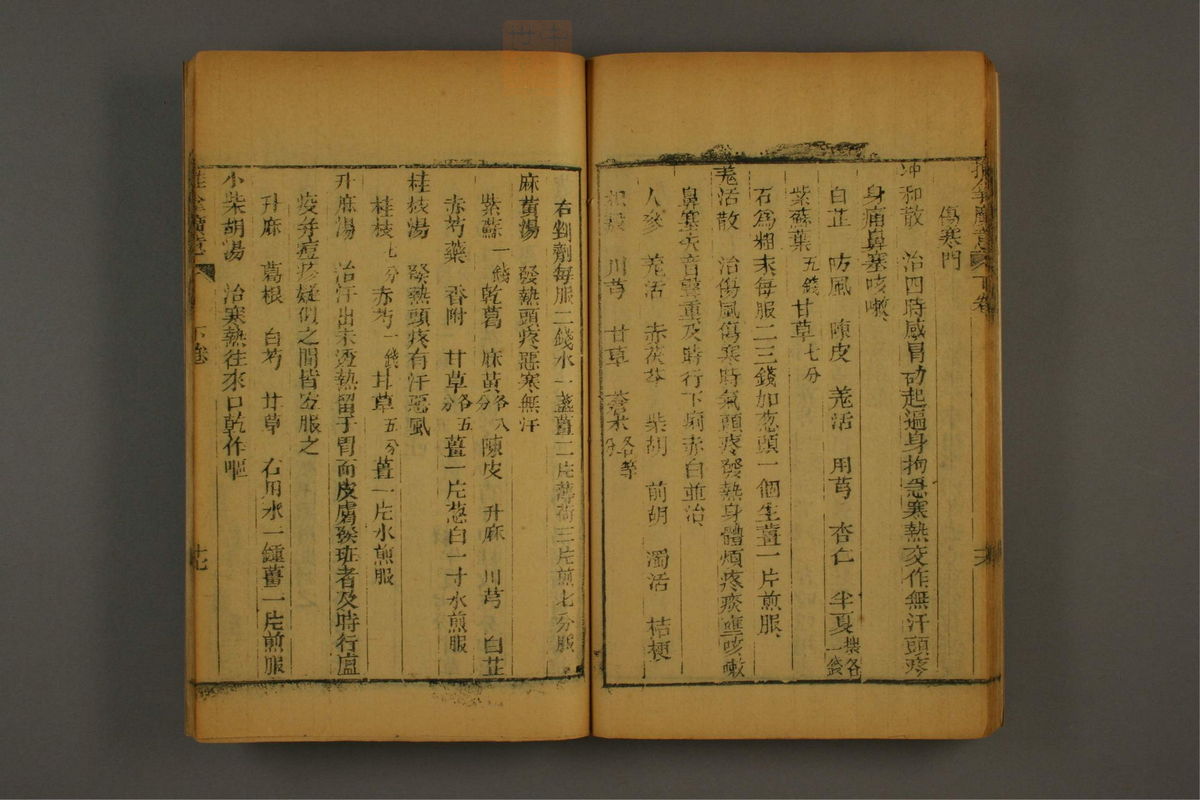 傷寒門
冲和散　治四時感冒初起遍身拘急寒熱交作無汗頭疼
身痛鼻塞咳嗽
白芷　防風　陳皮　羗活　川芎　杏仁　半夏各一錢
紫蘇葉五錢　甘草七分
右為粗末每服二三錢加葱頭一個生薑一片煎服
羗活散　治傷風傷寒時氣頭疼發熱身體煩疼痰壅咳嗽
鼻塞失音聲重及時行下痢赤白並治
人參　羗活　赤茯苓　柴胡　前胡　濁活　桔梗
枳殼　川芎　甘草　蒼术各等分
右剉劑每服二錢水一盞薑二片薄荷三片煎七分服
麻黄湯　發熱頭疼惡寒無汗
紫蘇一錢　乾葛　麻黄各八分　陳皮　升麻　川芎　白芷
赤芍藥　香附　甘草各五分　薑一片葱白一寸水煎服
桂枝湯　發熱頭疼有汗惡風
桂枝七分　赤芍一錢　甘草五分　薑一片水煎服
升麻湯　治汗出未透熱留于胃而皮膚發班者及時行
疫并痘疹疑似之間皆宜服之
升麻　葛根　白芍　甘草　右用水一鍾薑一片煎服
小柴胡湯　治寒熱往來口乾作嘔
下卷